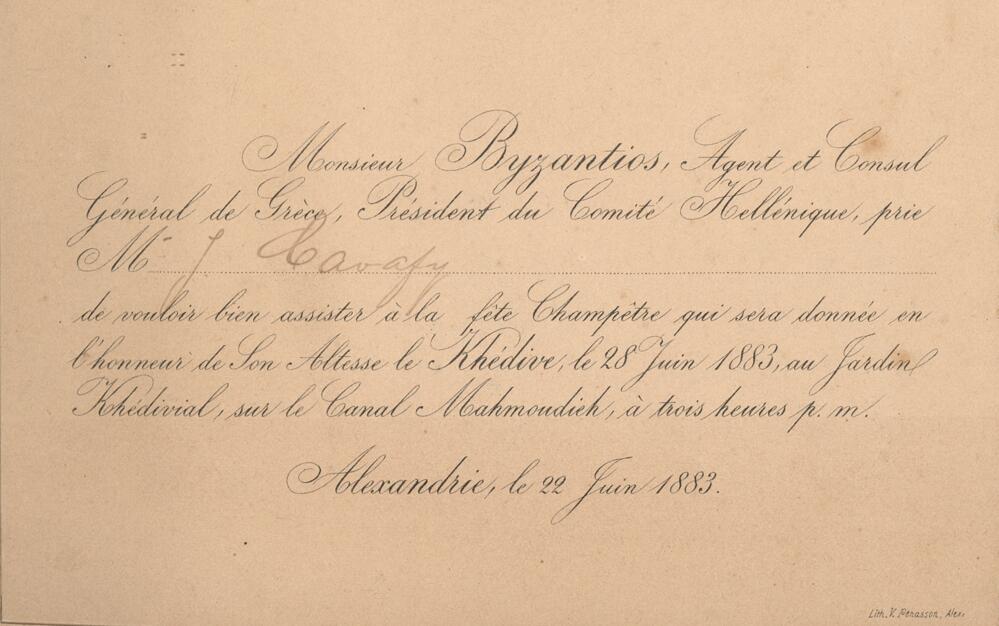 Monsieur Byzantios, Agent et Consul
Général de Grèce, Président du Comité Hellénique, prie
Mr J Cavafy
de vouloir bien assister à la fête Champêtre qui sera donnée en
l'honneur de Son Altesse le Khédive, le 28 Juin 1883, au Jardin
Khédivial, sur le Canal Mahmoudieh, à trois heures p. m.
Alexandrie, le 22 Juin 1883.
Lith. V. Penasson, Alex.